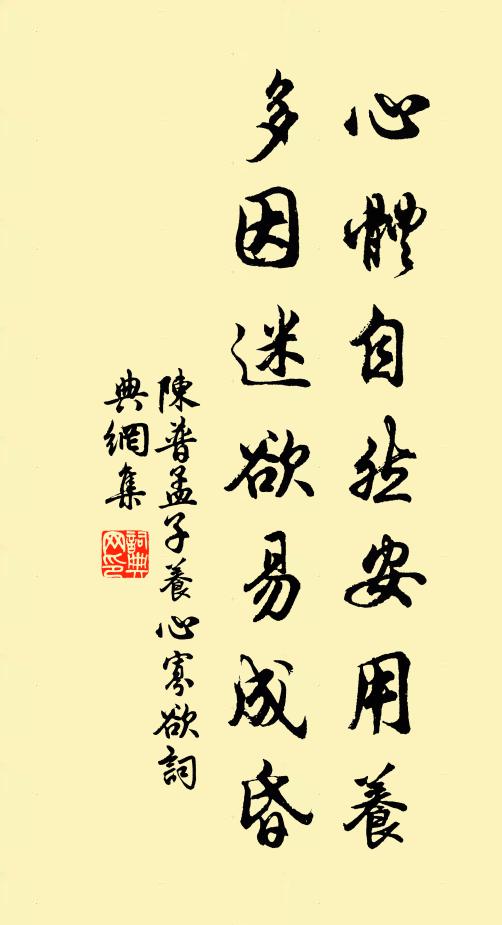 心體自然安用養
多因迷欲易成昏
陳普孟子養心寡欲詞
典網集
詞典
网印